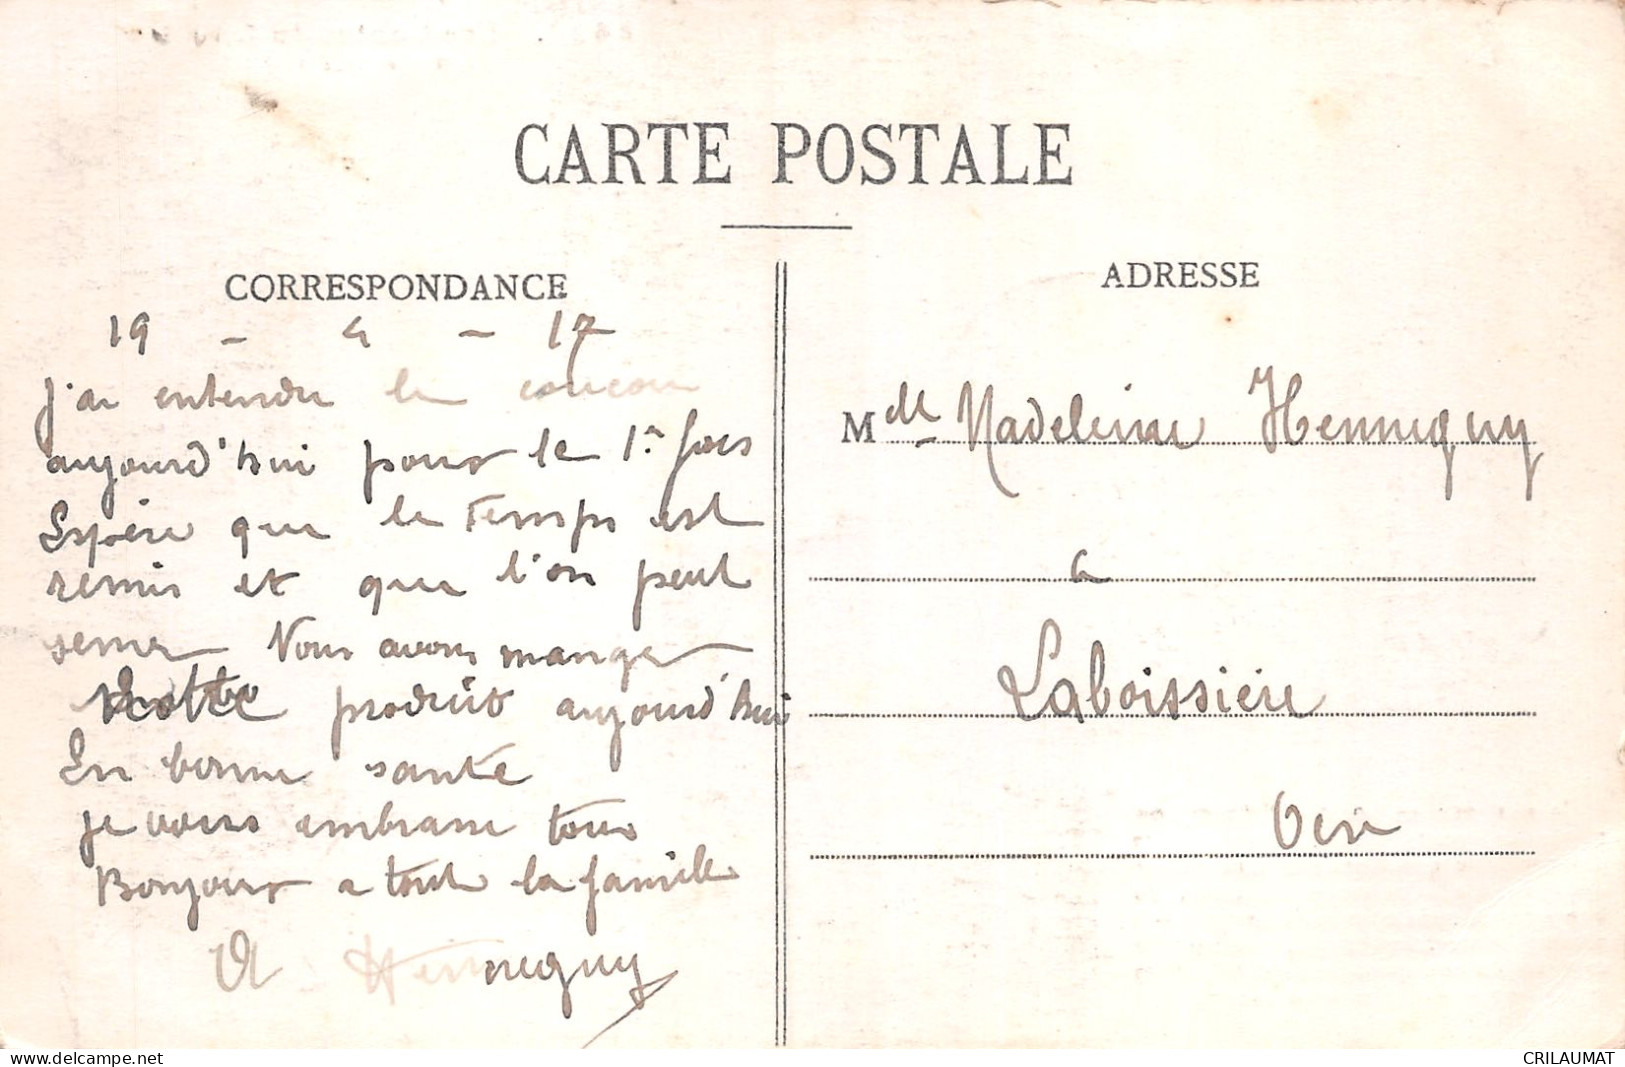 CARTE POSTALE
CORRESPONDANCE
19 - 4 - 17
J'ai entendu le coucou
aujourd'hui pour la 1re fois
Espère que le temps est
remis et que l'on peut
semer Nous avons mangé
produit aujourd'hui
En bonne santé
je vous embrasse tous
Bonjour a toute la famille
A Hennequy
ADRESSE
Mdlle Madeleine Hennequy
a
Laboissière
Oise
www.delcampe.net
CRILAUMAT